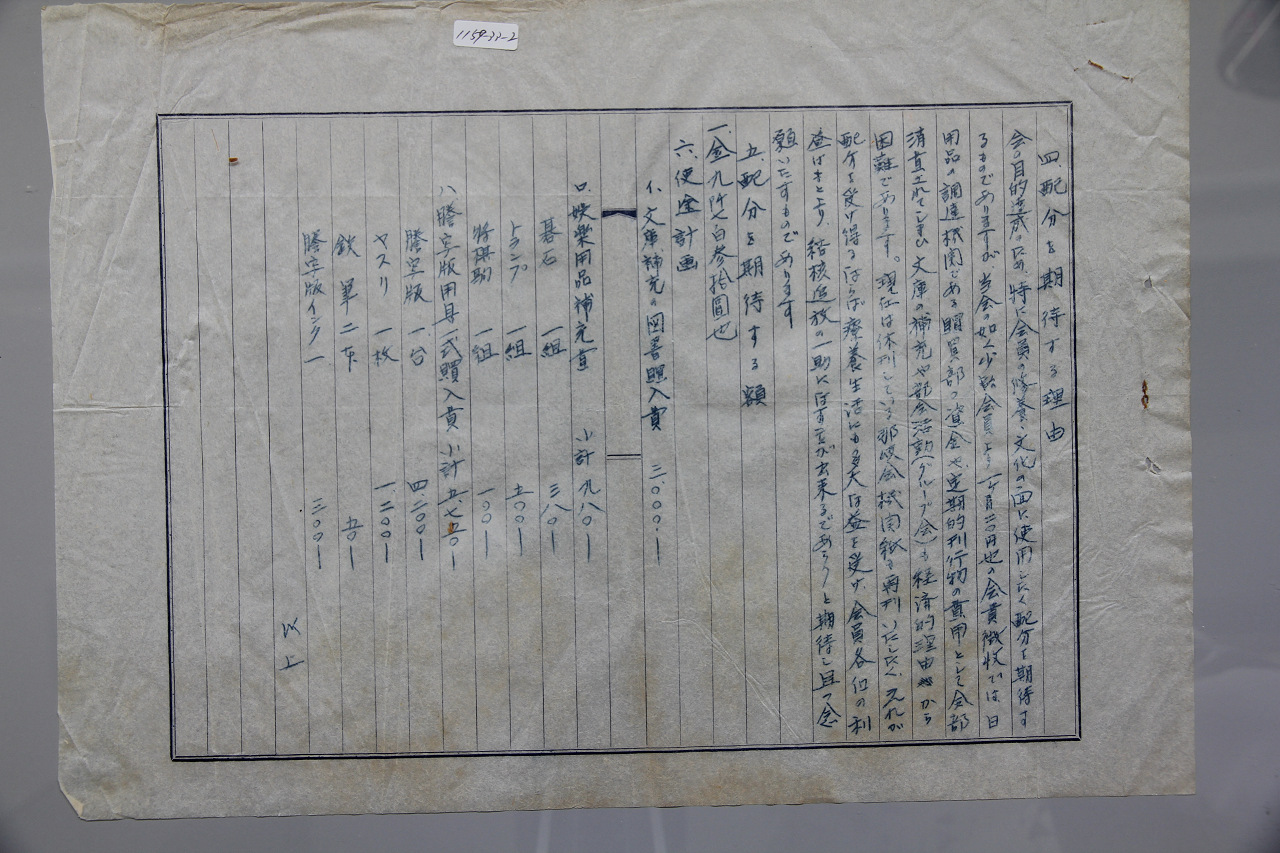 1159-33-2
四、配分を期待する理由
会の目的達成のため、特に会員の修養、文化の面に使用したく配分を期待す
るものでありますが、当会の如く少数会員より一ヶ月二〇円也の会費徴收では、日
用品の調達機関である購買部の資金や、定期的刊行物の費用として全部
消費されてしまひ文庫の補充や部会活動(グループ会)も経済的理由から
困難であります。現在は休刊している 会機関紙も再刊いたしたく、之れが
配分を受け得るならば療養生活にも多大な益を受け、会員各位の利
益はもとより、結核追放の一助にはなす事が出来るであらうと期待し且つ念
願いたすものであります
五、配分を期待する額
一、金九阡七百参拾圓也
六、使途計画
イ、文庫補充の図書購入費 三、〇〇〇.―
ロ、娯楽用品補充費 小計 九八〇―
碁石 一組 三八〇―
トランプ 一組 五〇〇―
将棋駒 一組 一〇〇―
ハ、謄写版用具一式購入費 小計 五、七五〇―
謄写版 一台 四、二〇〇―
ヤスリ 一枚 一、二〇〇―
鉄筆 二本 五〇―
謄写版インク 一 三〇〇―
以上